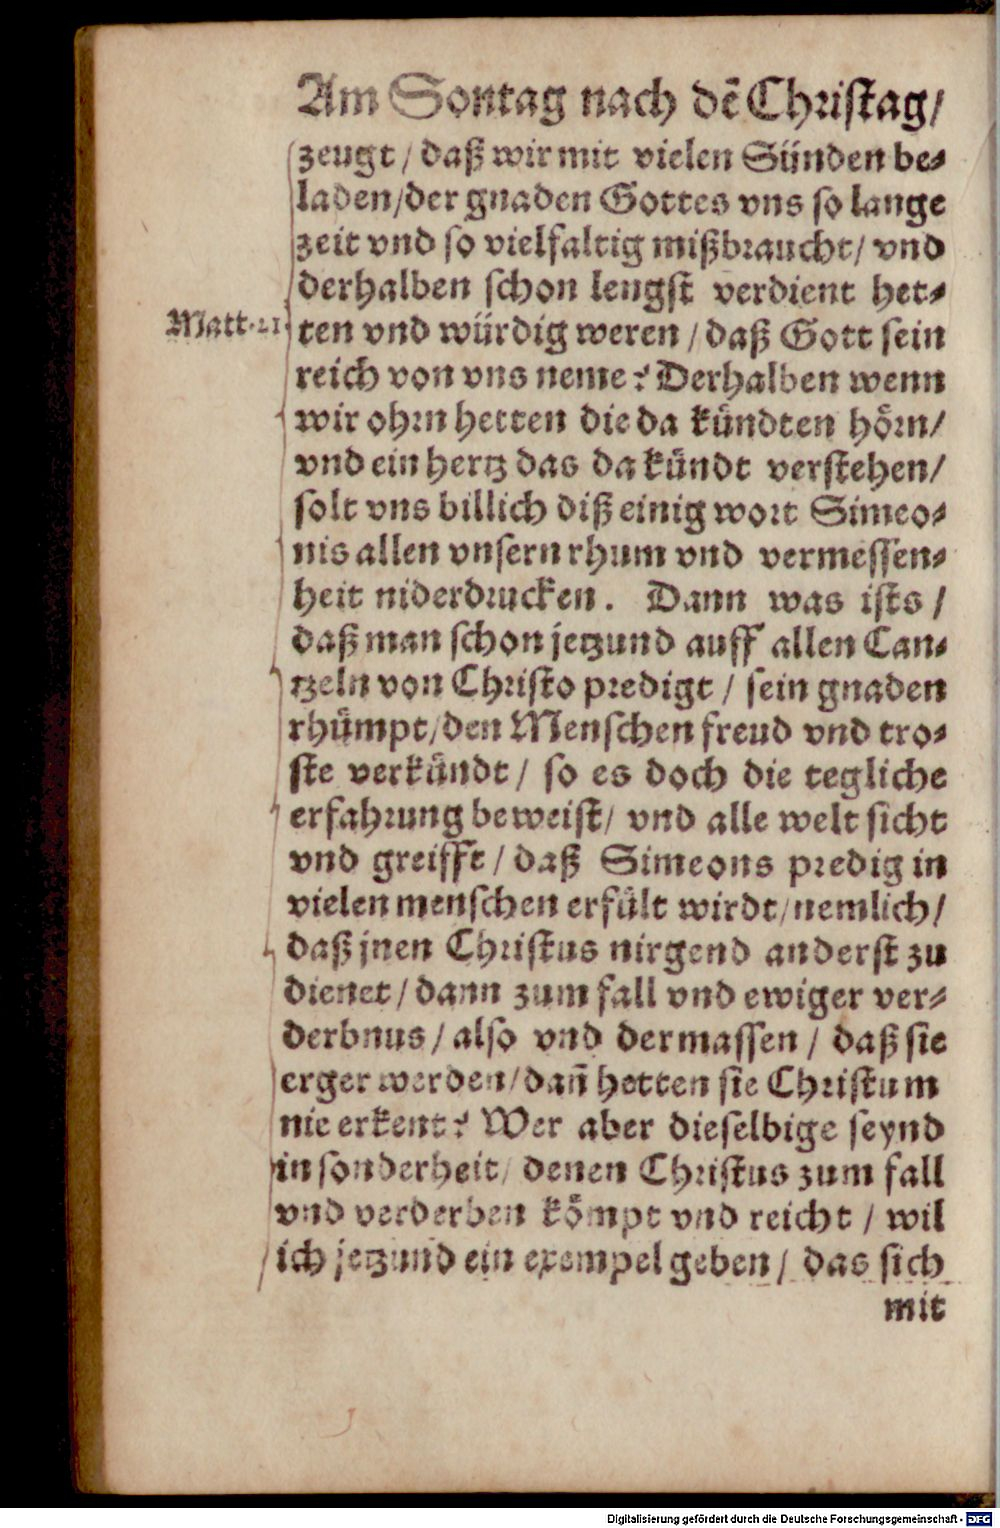 Am Sontag nach dẽ Christag/
zeugt/ daß wir mit vielen Sünden be-
laden/der gnaden Gottes vns so lange
zeit vnd so vielfaltig mißbraucht/ vnd
derhalben schon lengst verdient het-
Matt. 21.
ten vnd würdig weren/ daß Gott sein
reich von vns neme? Derhalben wenn
wir ohrn hetten die da kündten hörn/
vnd ein hertz das da kündt verstehen/
solt vns billich diß einig wort Simeo-
nis allen vnsern rhum vnd vermessen-
heit niderdrucken. Dann was ists/
daß man schon jetzund auff allen Can-
tzeln von Christo predigt/ sein gnaden
rhümpt/den Menschen freud vnd tro-
ste verkündt/ so es doch die tegliche
erfahrung beweist/ vnd alle welt sicht
vnd greifft/ daß Simeons predig in
vielen menschen erfült wirdt/nemlich/
daß jnen Christus nirgend anderst zu
dienet/ dann zum fall vnd ewiger ver-
derbnus/ also vnd dermassen/ daß sie
erger werden/dañ hetten sie Christum
nie erkent? Wer aber dieselbige seynd
in sonderheit/ denen Christus zum fall
vnd verderben kömpt vnd reicht/ wil
ich jetzund ein exempel geben/ das sich
mit
Digitalisierung gefördert durch die Deutsche Forschungsgemeinschaft - DFG